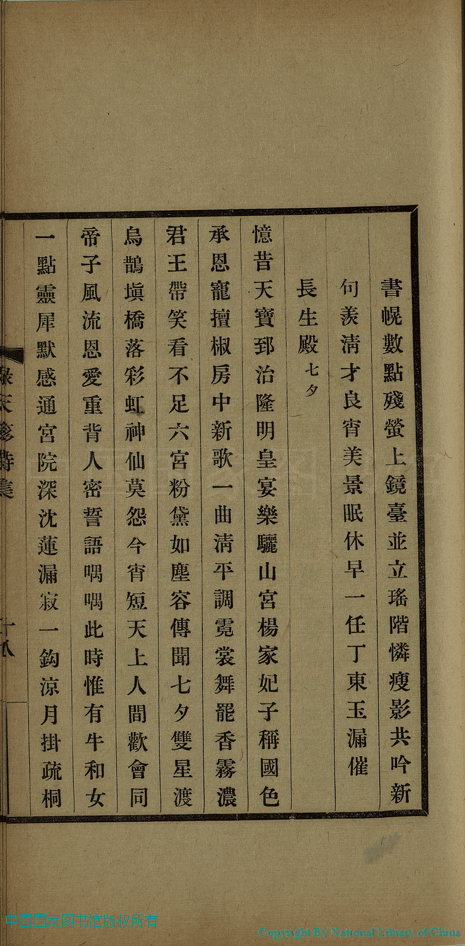 書幌數點殘螢上鏡臺並立瑤階憐瘦影共吟新
句羨清才良宵美景眠休早一任丁東玉漏催
長生殿 七夕
憶昔天寶郅治隆明皇宴樂驪山宮楊家妃子稱國色
承恩寵擅椒房中新歌一曲清平調霓裳舞罷香霧濃
君王帶笑看不足六宮粉黛如塵容傳聞七夕雙星渡
烏鵲塡橋落彩虹神仙莫怨今宵短天上人間歡會同
帝子風流恩愛重背人密誓語喁喁此時惟有牛和女
一點靈犀默感通宮院深沈蓮漏寂一鈎涼月掛疏桐
Copyright By National Library of China